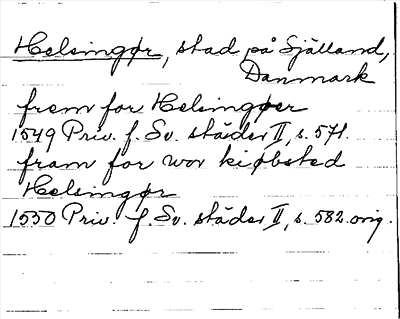 Helsingør, stad på Själland,
Danmark
frem for Helsingøer
1549 Priv. f. Sv. städer II, s. 571.
fram for wor kiøbsted
Helsingør
1550 Priv. f. Sv. städer II, s. 582 orig.